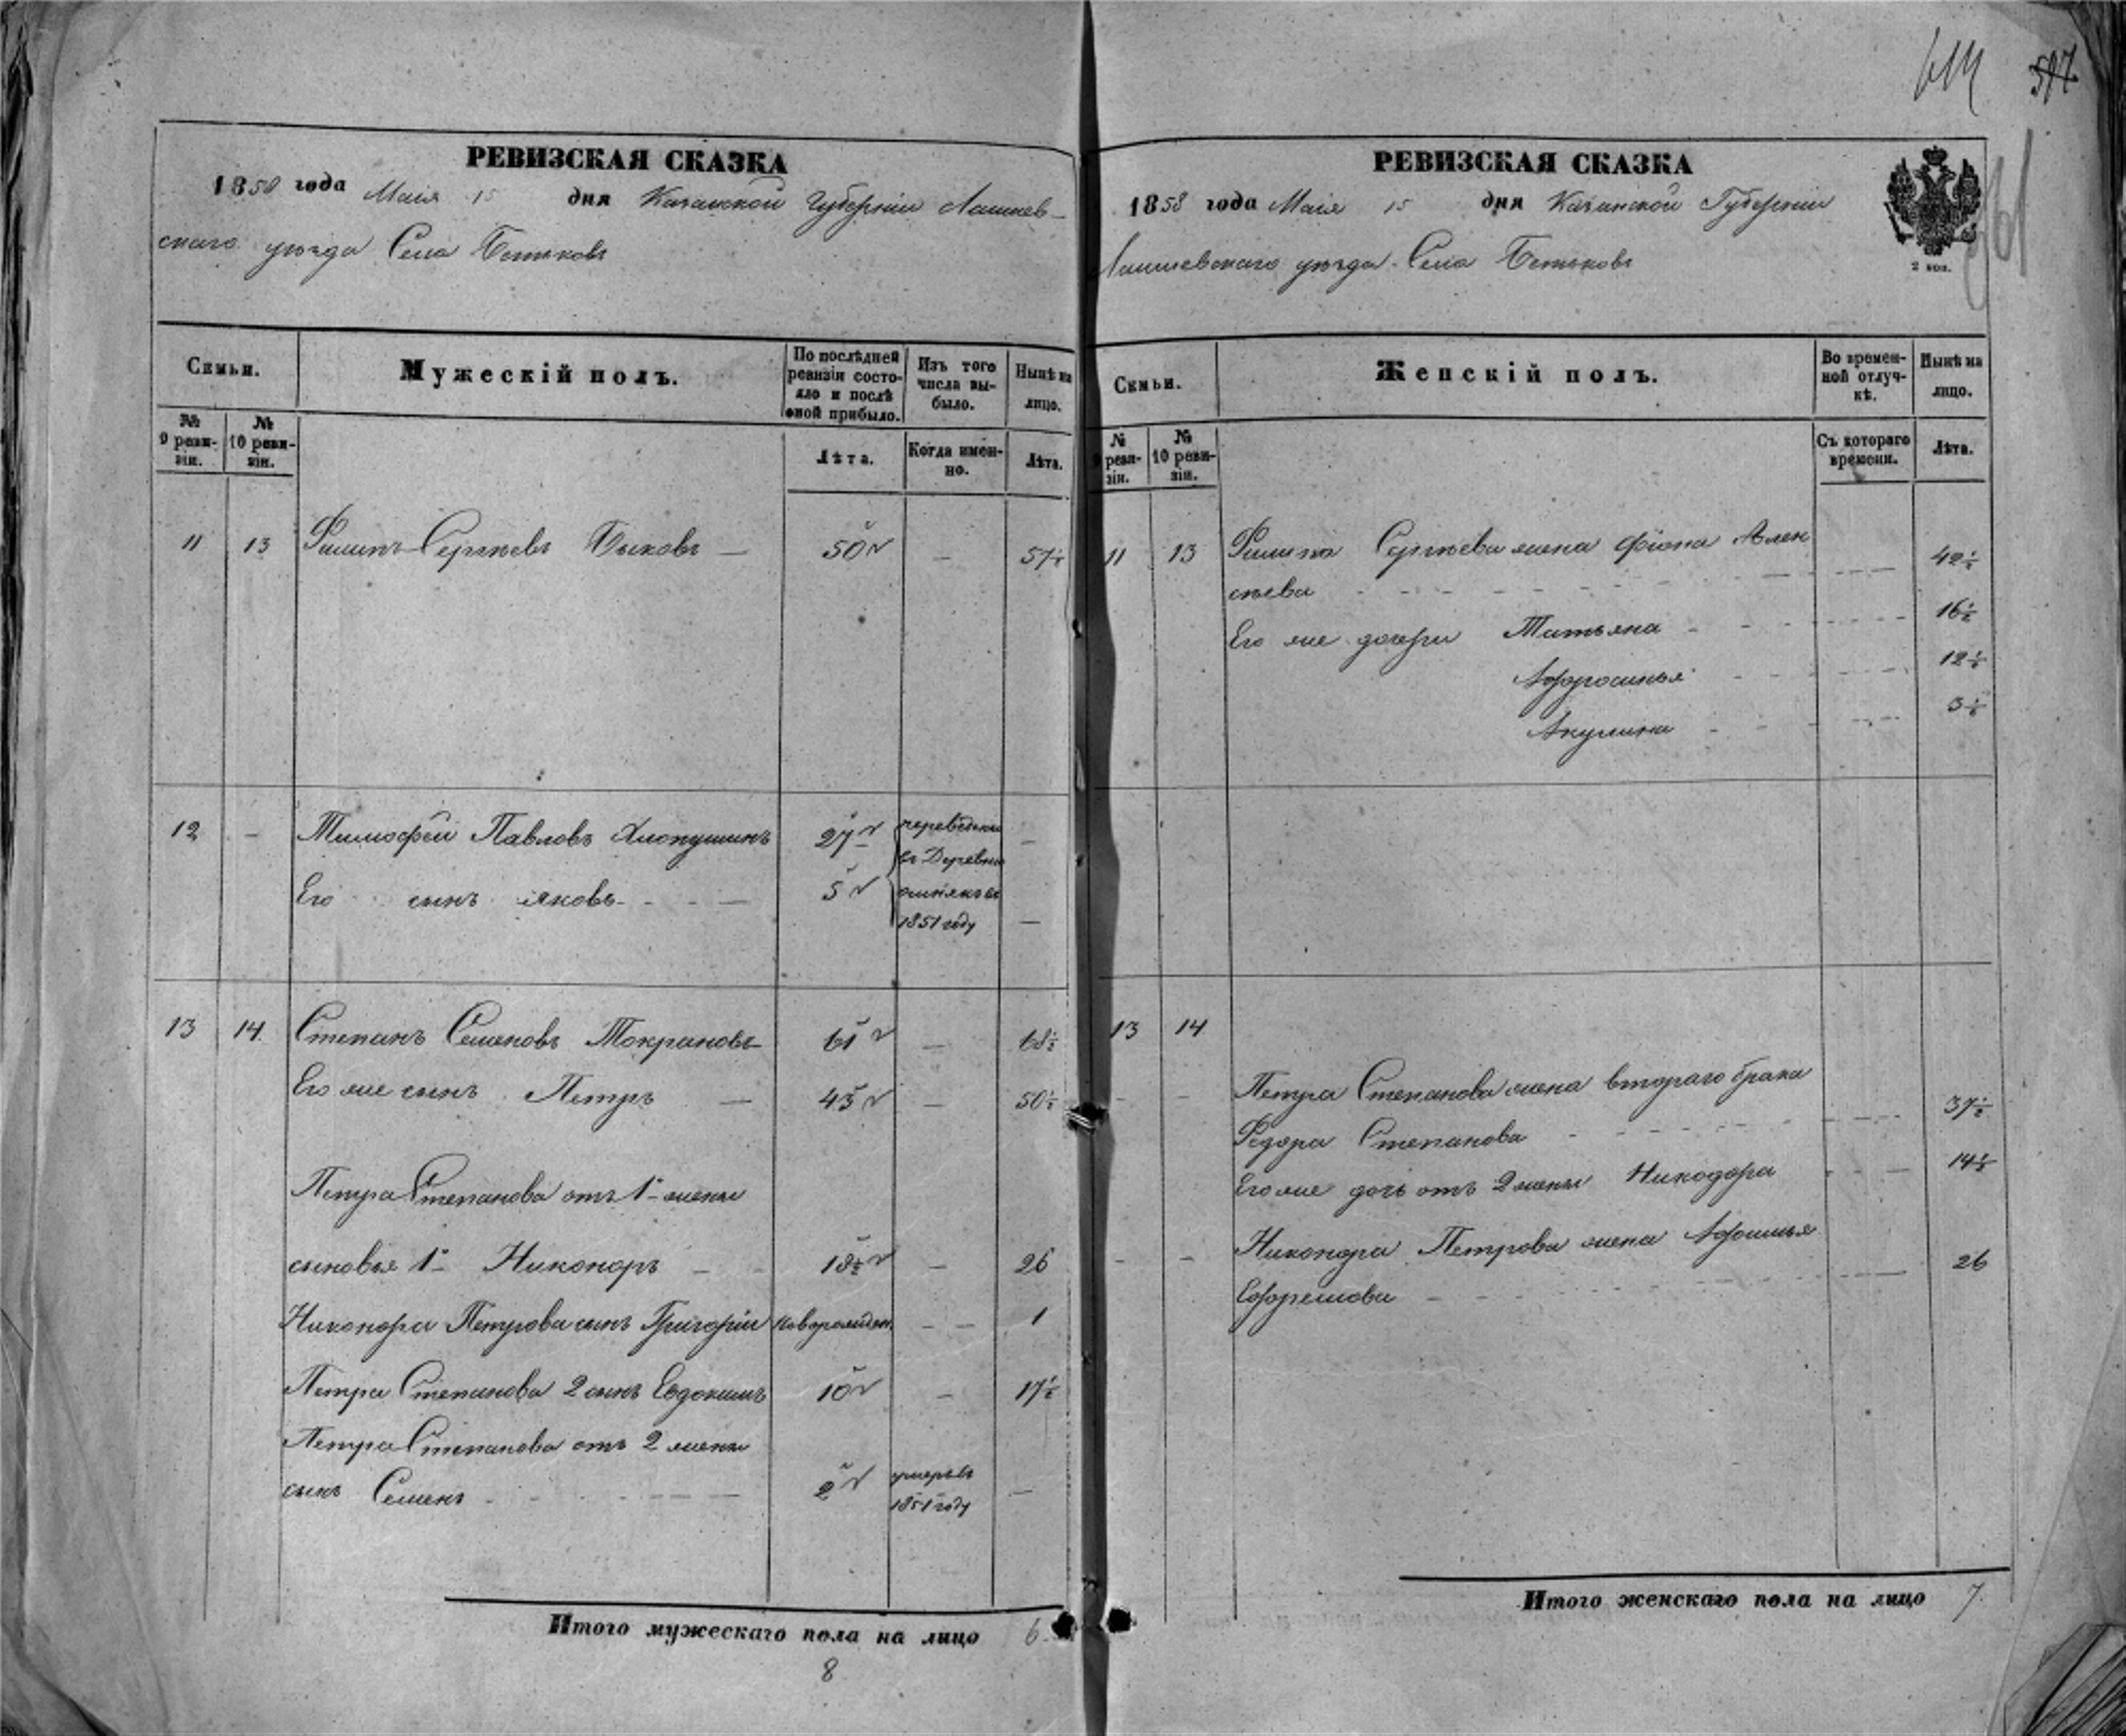 РЕВИЗСКАЯ СКАЗКА
1858 года Маія 15 дня Казанской Губерніи Лаишев-
скаго уѣзда Села Бетьковъ
Семьи.
Мужескій полъ.
По послѣдней ревизіи состо-яло и послѣ оной прибыло.
Изъ того числа вы-было.
Нынѣ на лицо.
№ 9 реви-зіи.
№ 10 реви-зіи.
Лѣта.
Когда имен-но.
Лѣта.
11 13 Филипъ Сергѣевъ Быковъ — 50 — 57½
12 — Тимофей Павловъ Хлопушинъ 27 переведены —
въ Деревню
Его сынъ Яковъ 5
1851 году —
13 14 Степанъ Семеновъ Мокрановъ 61 — 68½
Его же сынъ Петръ — 43 — 50½
Петра Степанова отъ 1й жены
сыновья 1й Никоноръ — 18½ — 26
Никонора Петрова сынъ Григорій новорожден. — — 1
Петра Степанова 2 сынъ Евдокимъ 10 — 17½
Петра Степанова отъ 2 жены
сынъ Семенъ 2 умеръ въ 1851 году —
Итого мужескаго пола на лицо 6
8
614 597
РЕВИЗСКАЯ СКАЗКА
1858 года Маія 15 дня Казанской Губерніи
Лаишевскаго уѣзда Села Бетьковъ
2 коп.
Семьи.
Женскій полъ.
Во времен-ной отлуч-кѣ.
Нынѣ на лицо.
№ 9 реви-зіи.
№ 10 реви-зіи.
Съ котораго времени.
Лѣта.
11 13 Филипа Сергѣева жена Фіона Алек
сѣева 42½
Его же дочери Татьяна 16½
Афросинья 12½
Акулина 3½
13 14
Петра Степанова жена втораго брака
Федора Степанова 37½
Его же дочь отъ 2 жены Никодора 14½
Никонора Петрова жена Афимья
Ефремова 26
Итого женскаго пола на лицо 7.